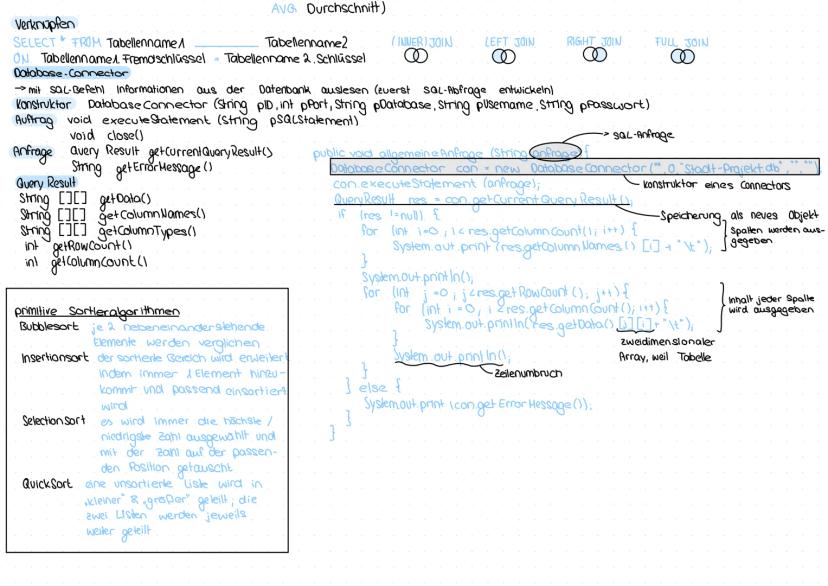 AVG Durchschnitt)
Verknüpfen
SELECT * FROM Tabellenname1 __________ Tabellenname2
ON Tabellenname1.Fremdschlüssel = Tabellenname 2.Schlüssel
(INNER) JOIN LEFT JOIN RIGHT JOIN FULL JOIN
Database-Connector
→ mit SQL-Befehl Informationen aus der Datenbank auslesen (zuerst SQL-Abfrage entwickeln)
Konstruktor DatabaseConnector (String pID, int pPort, String pDatabase, String pUsername, String pPasswort)
Auftrag void executeStatement (String pSQLStatement)
void close()
Anfrage Query Result getCurrentQueryResult()
String getErrorMessage()
Query Result
String [][] getData()
String [] getColumnNames()
String [] getColumnTypes()
int getRowCount()
int getColumnCount()
primitive Sortieralgorithmen
Bubblesort je 2 nebeneinanderstehende
Elemente werden verglichen
Insertionsort der sortierte Bereich wird erweitert
indem immer 1 Element hinzu-
kommt und passend einsortiert
wird
Selectionsort es wird immer die höchste /
niedrigste Zahl ausgewählt und
mit der Zahl auf der passen-
den Position getauscht
QuickSort eine unsortierte Liste wird in
„kleiner" & „größer" geteilt; die
zwei Listen werden jeweils
weiter geteilt
→ SQL-Anfrage
public void allgemeineAnfrage (String anfrage) {
DatabaseConnector con = new DatabaseConnector("", 0, "Stadt-Projekt.db", "", "");
Konstruktor eines Connectors
con.executeStatement (anfrage);
QueryResult res = con.getCurrentQueryResult();
Speicherung als neues Objekt
if (res != null) {
for (int i=0; i<res.getColumnCount(); i++) {
System.out.print (res.getColumnNames() [i] + "\t");
Spalten werden aus-
gegeben
}
System.out.println();
for (int j=0; j<res.getRowCount(); j++) {
for (int i=0; i<res.getColumnCount(); i++) {
System.out.println(res.getData() [j][i] + "\t");
Inhalt jeder Spalte
wird ausgegeben
}
zweidimensionaler
Array, weil Tabelle
System.out.println();
Zeilenumbruch
}
} else {
System.out.print (con.getErrorMessage());
}
}